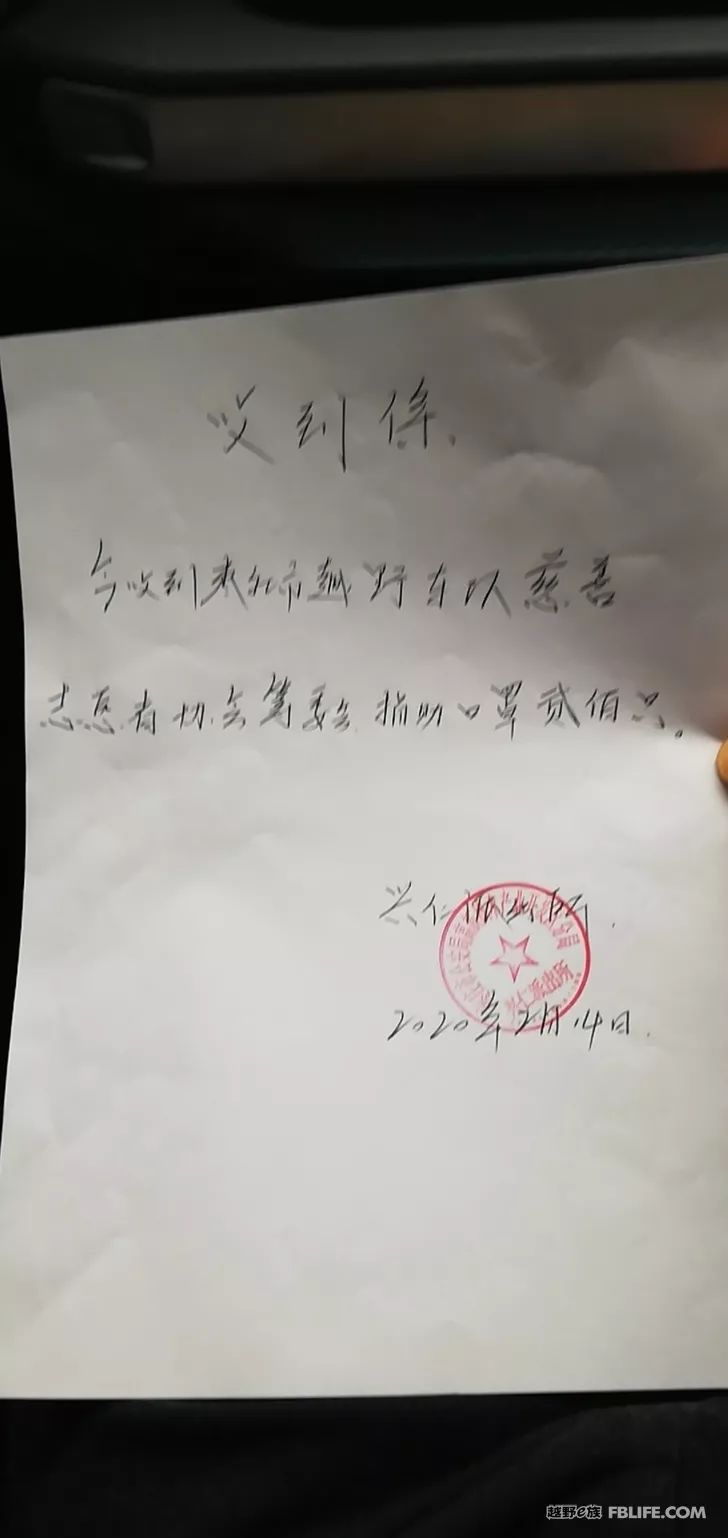 收到条
今收到来宾市越野车队慈善
志愿者协会筹委会捐助口罩贰佰只。
兴仁派出所
兴仁派出所
2020年2月14日
越野e族 FBLIFE.COM